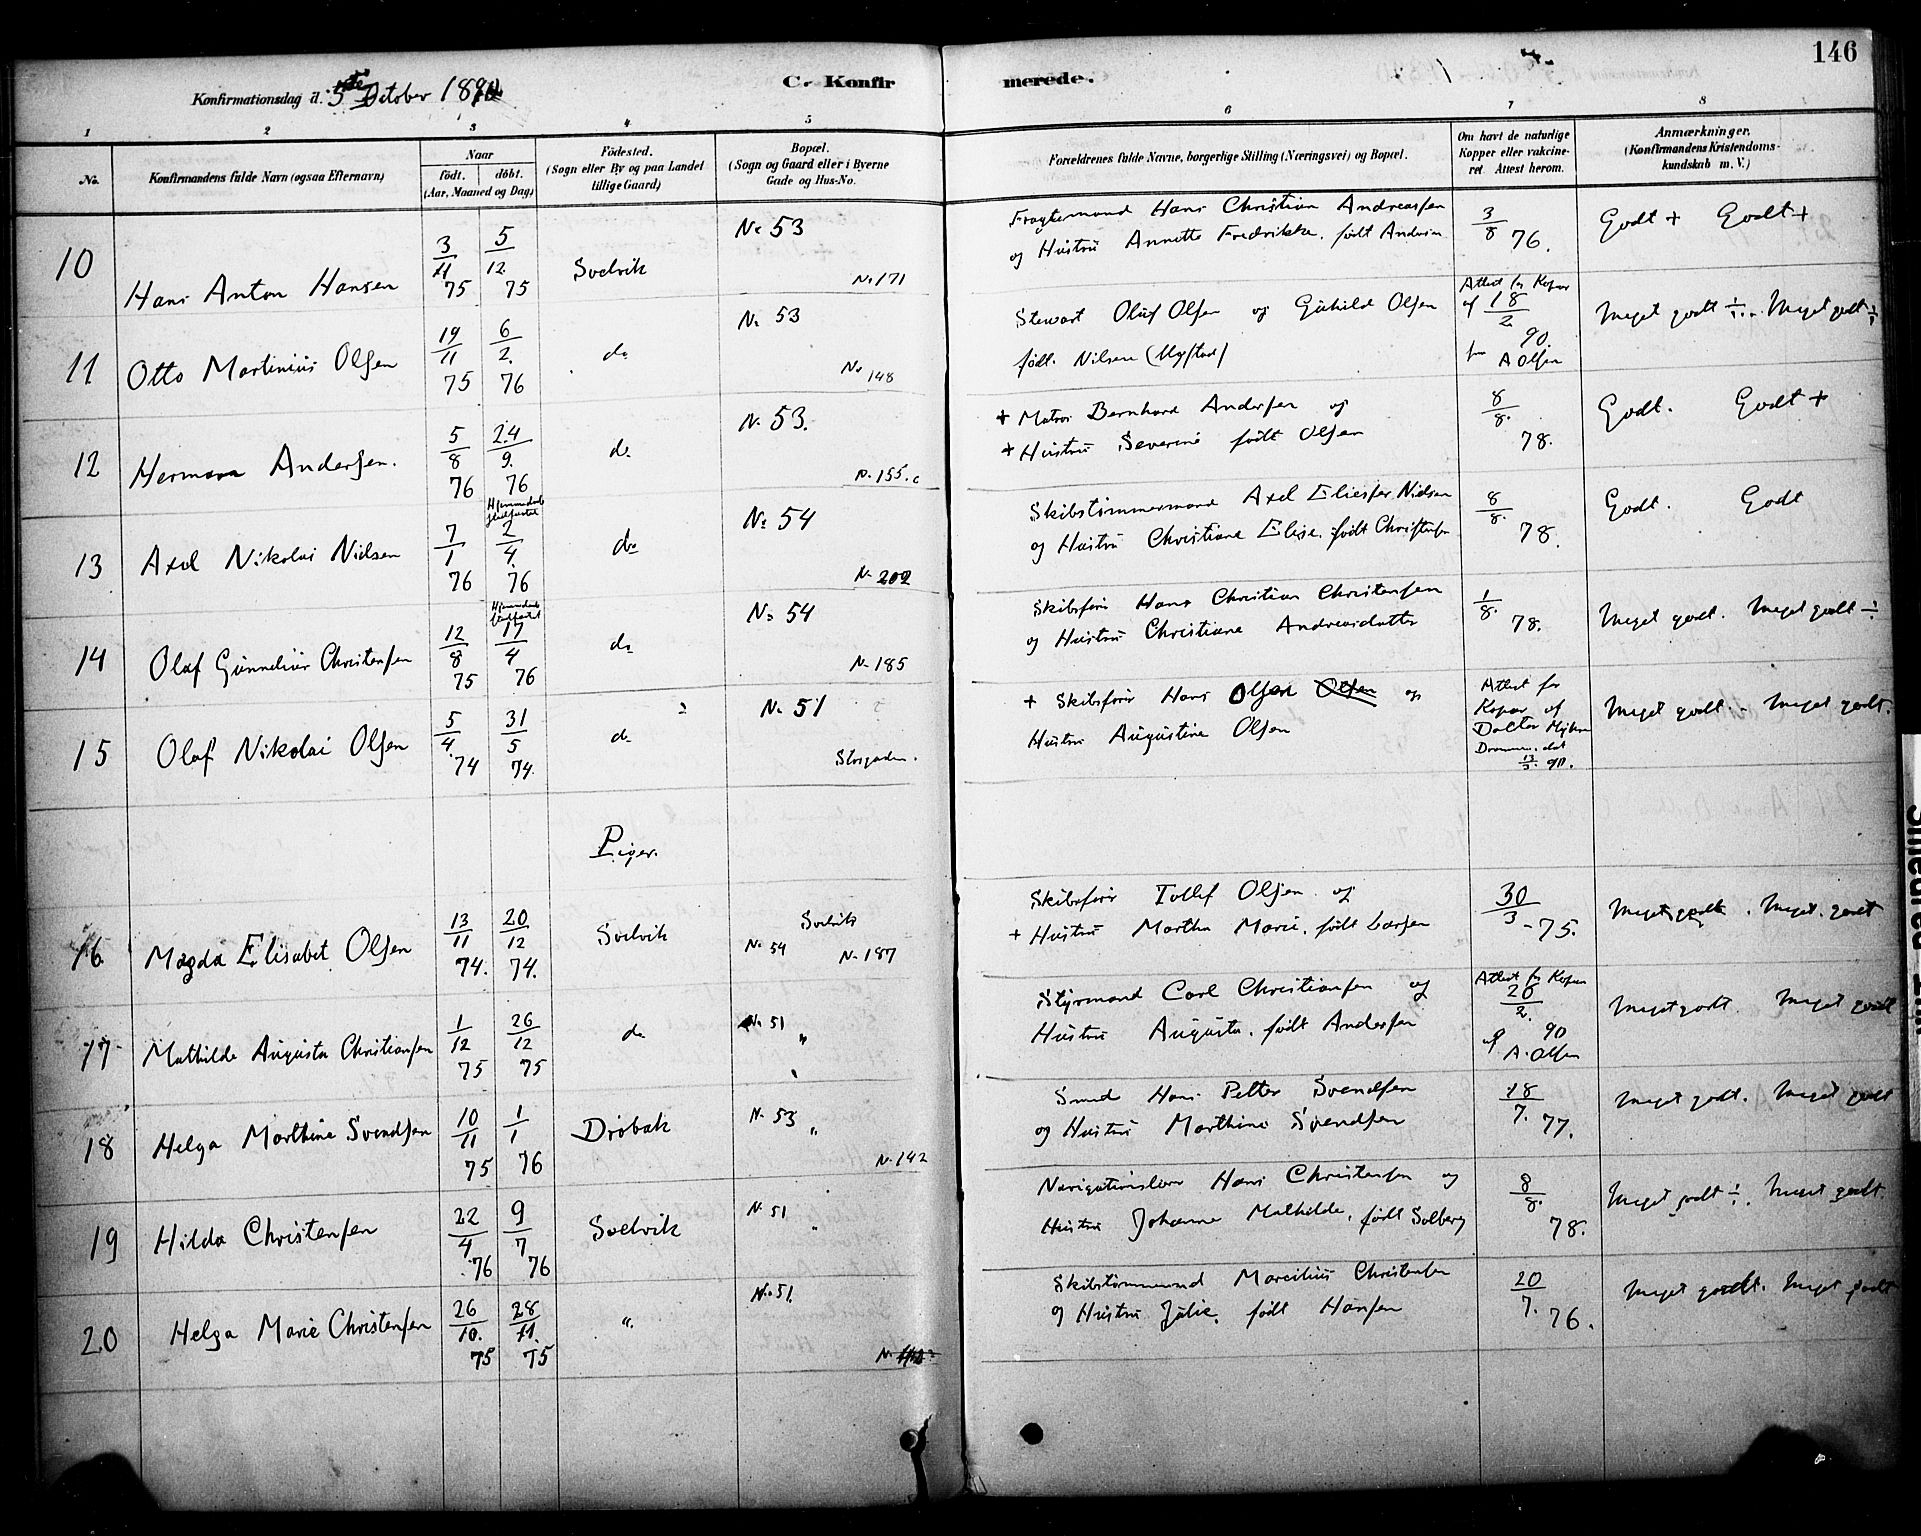 146
Konfirmationsdag d. 5te October 1890
C. Konfirmerede.
1 2 3 4 5 6 7 8
No. Konfirmandens fulde Navn (ogsaa Efternavn) Naar födt. döbt. (Aar, Maaned og Dag) Födested. (Sogn eller By og paa Landet tillige Gaard) Bopæl. (Sogn og Gaard eller i Byerne Gade og Hus-No. Forældrenes fulde Navne, borgerlige Stilling (Næringsvei) og Bopæl. Om havt de naturlige Kopper eller vakcineret. Attest herom. Anmærkninger. (Konfirmandens Kristendomskundskab m. V.)
10 Hans Anton Hansen 3/11 75 5/12 75 Svelvik No 53 No 171 Fragtemand Hans Christian Andreassen og Hustru Annette Fredrikke, født 3/8 76. Godt + Godt +
11 Otto Martinius Olsen 19/11 75 6/2. 76 do No 53 No 148 Stewart Oluf Olsen og Guhilde Olsen født. Nilsen Attest for Kopar af 18/2 90. A Olsen Meget godt ÷. Meget godt ÷
12 Herman Andersen. 5/8 76 24/9. 76 do No 53. No 155.c + Matros Bernhard Andersen og + Hustru Severine født Olsen 8/8. 78. Godt. Godt +
13 Axel Nikolai Nielsen 7/1 76 Hjemmedøb 2/4. 76 do No 54 No 202 Skibstømmermand Axel Nielsen og Hustru Christiane Elise, født Christensen 8/8. 78. Godt. Godt
14 Olaf Gunnelius Christensen 12/8 75 Hjemmedøb 17/4 76 do No 54 No 185 Skibsfører Hans Christian Christensen og Hustru Christiane Andreasdatter 1/8. 78. Meget godt. Meget godt ÷
15 Olaf Nikolai Olsen 5/4. 74 31/5 74. do No 51 Storgaden. + Skibsfører Hans Olsen og Hustru Augustine Olsen Attest for Kopar af Doctor Drammen. dat 13/3. 90. Meget godt. Meget godt.
Piger.
16 Magda Elisabet Olsen 13/11 74. 20/12 74. Svelvik Svelvik No 54 No 187 Skibsfører Tollef Olsen og + Hustru Martha Marie, født Larsen 30/3 - 75. Meget godt. Meget godt
17 Mathilde Augusta Christiansen 1/12 75 26/12 75 do No 51 " Styrmand Carl Christiansen og Hustru Augusta, født Andersen Attest for Kopar 20/2. 90 af A. Olsen Meget godt. Meget godt
18 Helga Marthine Svendsen 10/11 75 1/1 76 Drøbak No 53 " No 142 Smed Hans Petter Svendsen og Hustru Marthine Svendsen 18/7. 77. Meget godt. Meget godt
19 Hilda Christensen 22/4 76 9/7 76 Svelvik No 51 " Navigationslærer Hans Christensen og Hustru Johanne Mathilde, født Solberg 8/8. 78. Meget godt ÷. Meget godt.
20 Helga Marie Christensen 26/10. 75 28/11. 75 " No 51. Skibstømmermand Marcilius Christensen og Hustru Julie, født Hansen 20/7. 76. Meget godt. Meget godt